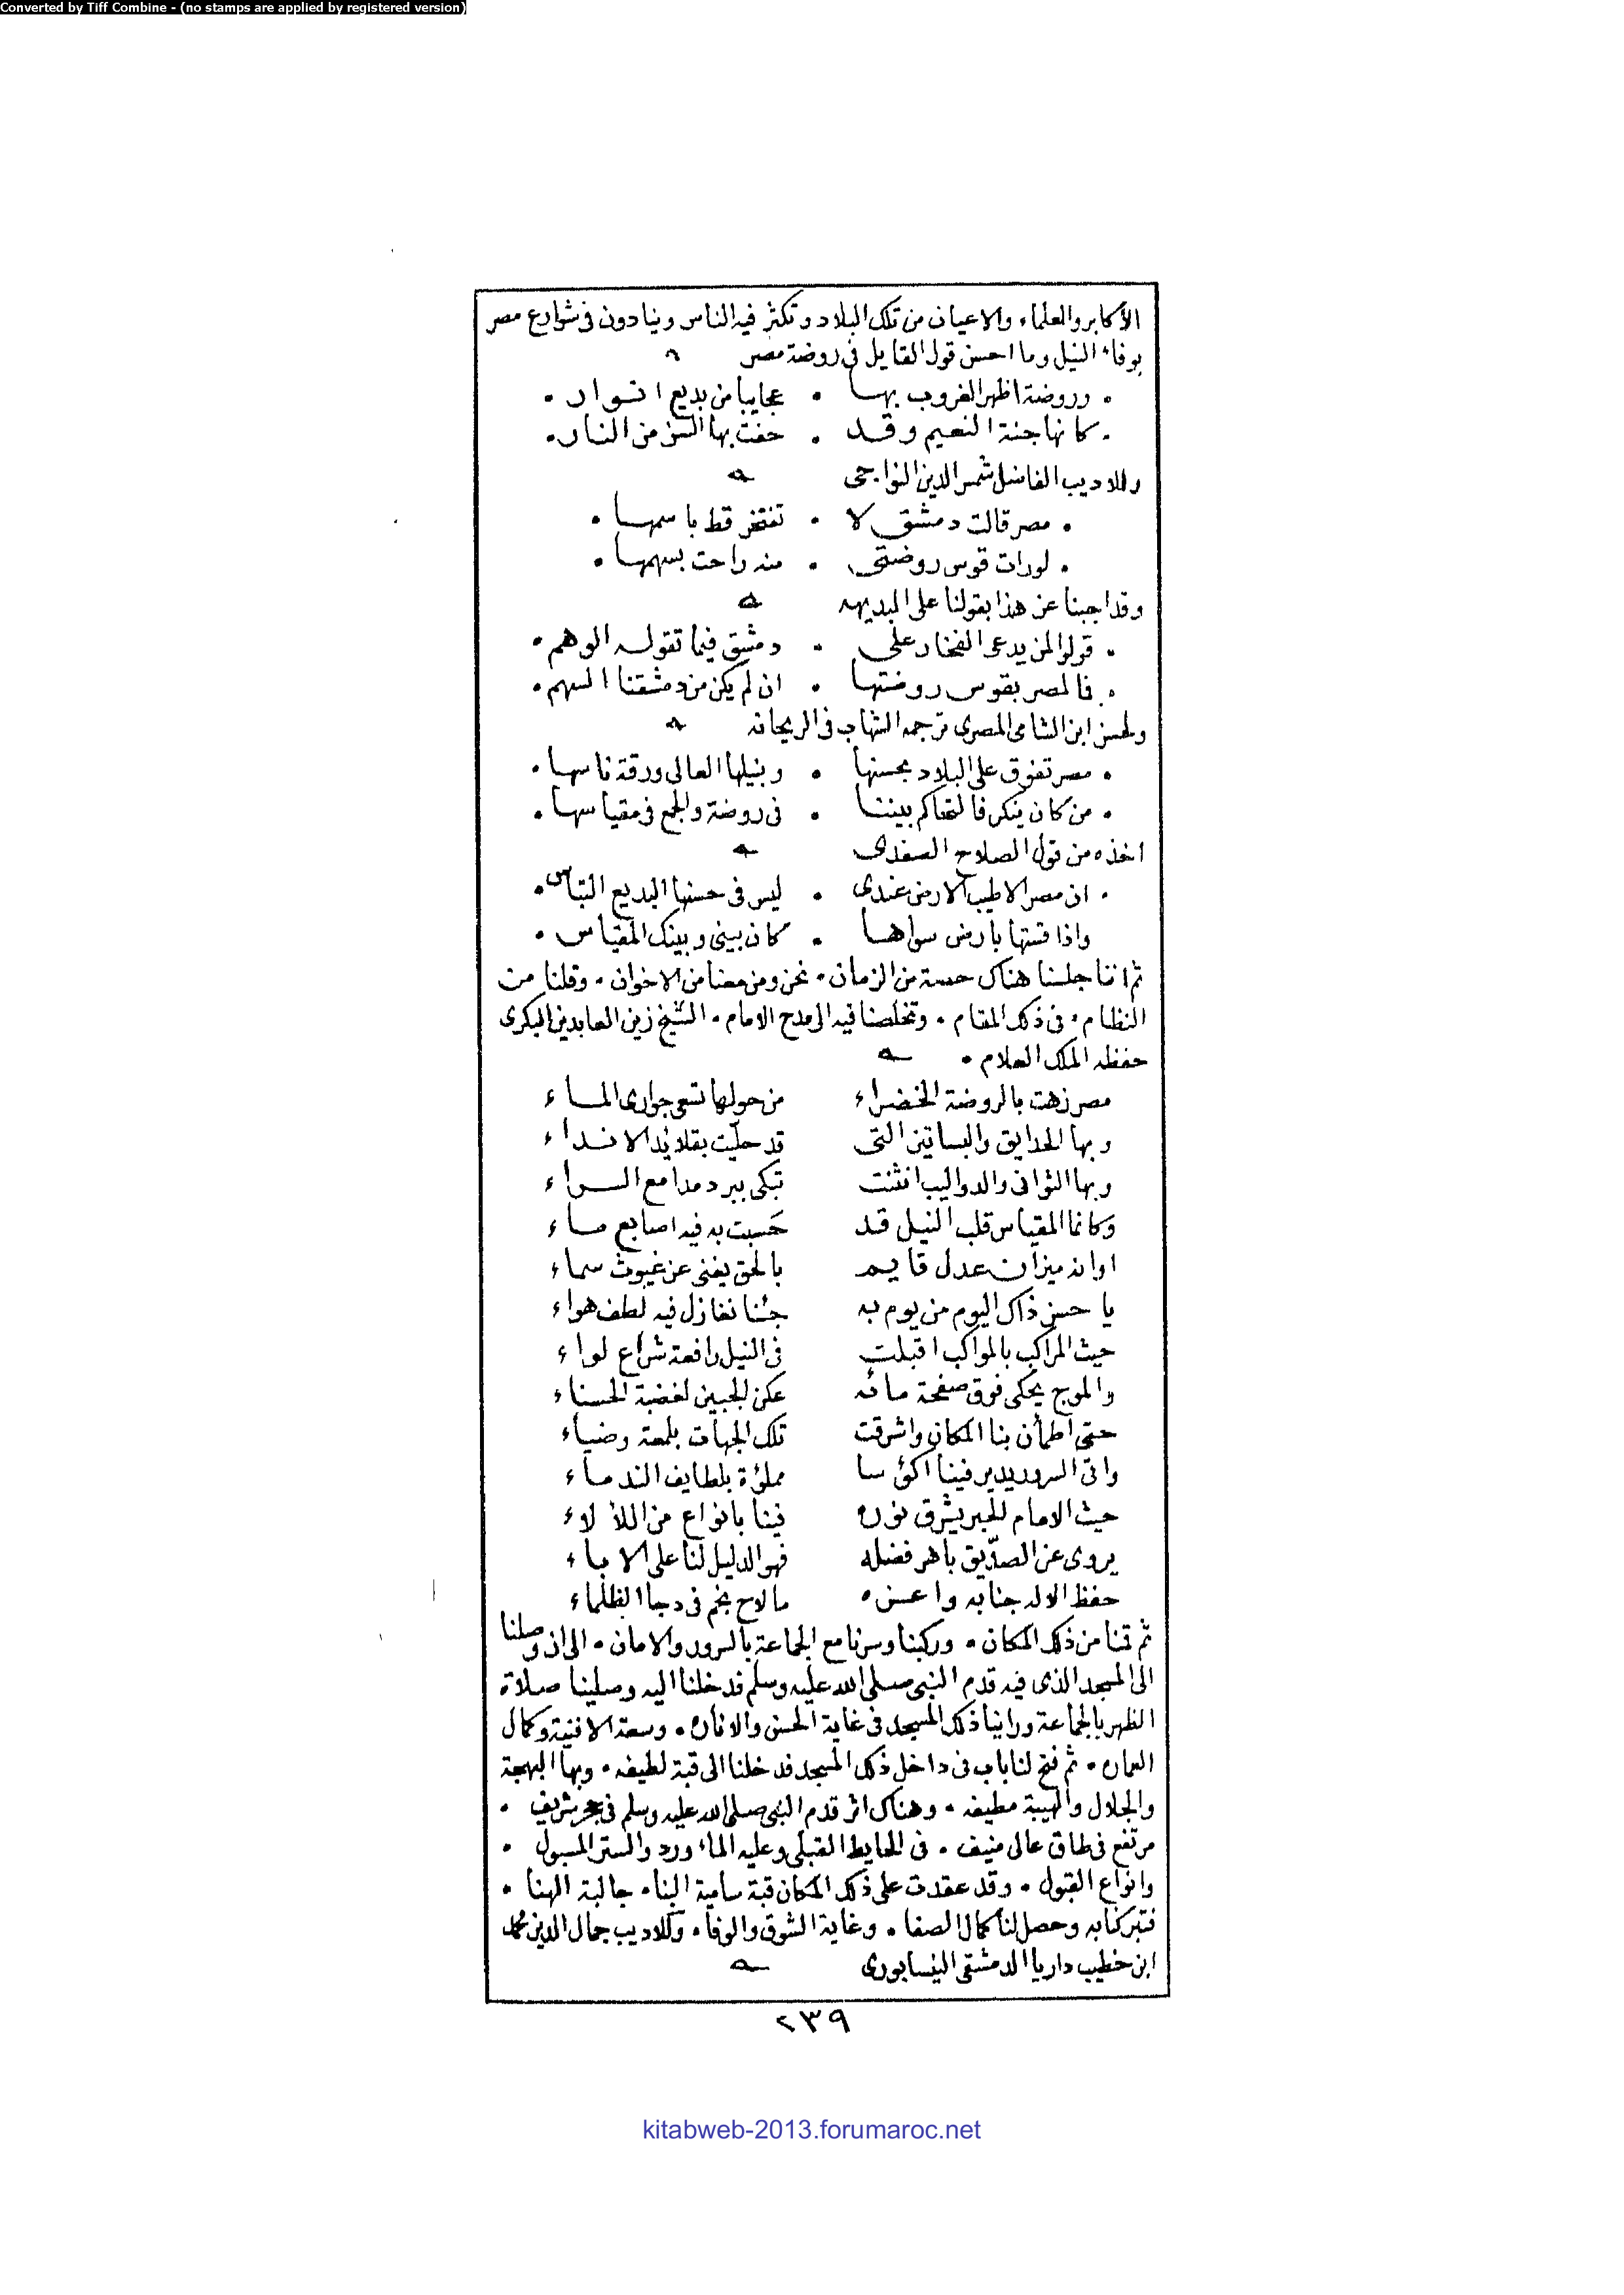 Converted by Tiff Combine - (no stamps are applied by registered version)
الأكابر والعلماء والاعيان من تلك البلاد وتكثر فيه الناس وينادون فى شوارع مصر
بوفاء النيل وما احسن قول القايل فى روضة مصر
وروضة اظهر الغروب بها • عجايبا من بديع انوار •
كانها جنة النعيم وقد • حفت بها السن من النار •
وللاديب الفاضل شمس الدين النواجى
• مصر قالت دمشق لا • تفتخر قط باسمها •
• لو رات قوس روضتى • منه راحت بسهمها •
وقد اجبنا عن هذا بقولنا على البديهه
• قولوا لمن يدعى الفخار على • دمشق فيما تقوله الوهم •
• فالمصر بقوس روضتها • ان لم يكن من دمشقنا السهم •
ولحسن ابن الشامى المصرى ترجمه الشهاب فى الريحانه
• مصر تفوق على البلاد بحسنها • وبنيلها العالى ورقة ناسها •
• من كان ينكر فالتحاكم بيننا • فى روضة والجمع فى مقياسها •
اخذه من قول الصلاح الصفدى
• ان مصر الاطيب الارض عندى • ليس فى حسنها البديع التباس •
واذا قستها بارض سواها • كان بينى وبينك المقياس •
ثم اننا جلسنا هناك حصة من الزمان • نحن ومن معنا من الاخوان • وقلنا من
النظام • فى ذلك المقام • وتخلصنا فيه الى مدح الامام • الشيخ زين العابدين البكرى
حفظه الملك العلام •
مصر زهت بالروضة الخضراء من حولها تسعى جوارى الماء
وبها الحدايق والبساتين التى قد حلّيت بقلائد الانداء
وبها النوانى والدواليب انثنت تبكى ببرد مدامع السراء
وكانما المقياس قلب النيل قد حَسبت به فيه اصابع ماء
او انه ميزان عدل قايم بالحق يغنى عن غيوث سماء
يا حسن ذاك اليوم من يوم به جئنا نغازل فيه لطف هواء
حيث المراكب بالمواكب اقبلت فى النيل رافعة شراع لواء
والموج يحكى فوق صفحة مائه عكن الجبين لغضبة الحسناء
حتى اطمأن بنا المكان واشرقت تلك الجهات بلمعة وضياء
واتى السرور يدير فينا اكؤسا مملؤة بلطايف الندماء
حيث الامام الحبر يشرق نوره فينا بانواع من اللألاء
يروى عن الصدّيق باهر فضله فهو الدليل لنا على الاباء
حفظ الاله جنابه واعزه ما لاح نجم فى دجا الظلماء
ثم قمنا من ذلك المكان • وركبنا وسرنا مع الجماعة بالسرور والامان • الى ان وصلنا
الى المسجد الذى فيه قدم النبى صلى الله عليه وسلم فدخلنا اليه وصلينا صلاة
الظهر بالجماعة وراينا ذلك المسجد فى غاية الحسن والاناره • وسعة الافنية وكمال
العماره • ثم فتح لنا باب فى داخل ذلك المسجد فدخلنا الى قبة لطيفه • وبها البهجة
والجلال والهيبة مطيفه • وهناك اثر قدم النبى صلى الله عليه وسلم فى حجر شريف •
مرتفع فى طاق عالى منيف • فى الحايط القبلى وعليه الماء ورد والستر المسبول •
وانواع القبول • وقد عقدت على ذلك المكان قبة سامية البناء جالبة الهنا •
فتبركنا به وحصل لنا كمال الصفا • وغاية الشوق والوفاء • وللاديب جمال الدين محمد
ابن خطيب داريا الدمشقى النيسابورى
٢٣٩
kitabweb-2013.forumaroc.net